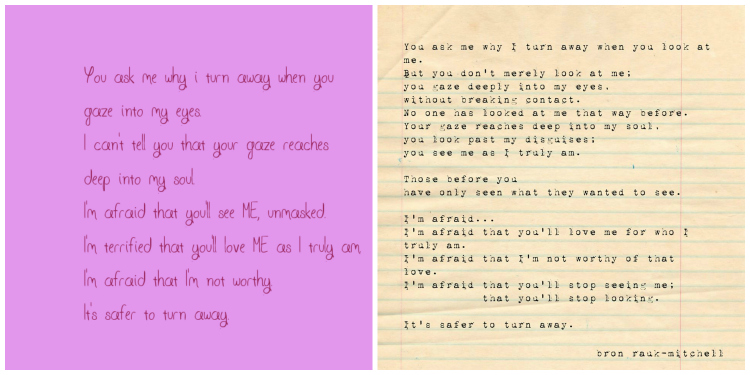 You ask me why i turn away when you
gaze into my eyes.
I can't tell you that your gaze reaches
deep into my soul.
I'm afraid that you'll see ME, unmasked.
I'm terrified that you'll love ME as I truly am.
I'm afraid that I'm not worthy.
It's safer to turn away.
You ask me why I turn away when you look at
me.
But you don't merely look at me;
you gaze deeply into my eyes,
without breaking contact.
No one has looked at me that way before.
Your gaze reaches deep into my soul,
you look past my disguises;
you see me as I truly am.
Those before you
have only seen what they wanted to see.
I'm afraid...
I'm afraid that you'll love me for who I
truly am.
I'm afraid that I'm not worthy of that
love.
I'm afraid that you'll stop seeing me;
that you'll stop looking.
It's safer to turn away.
bron rauk-mitchell